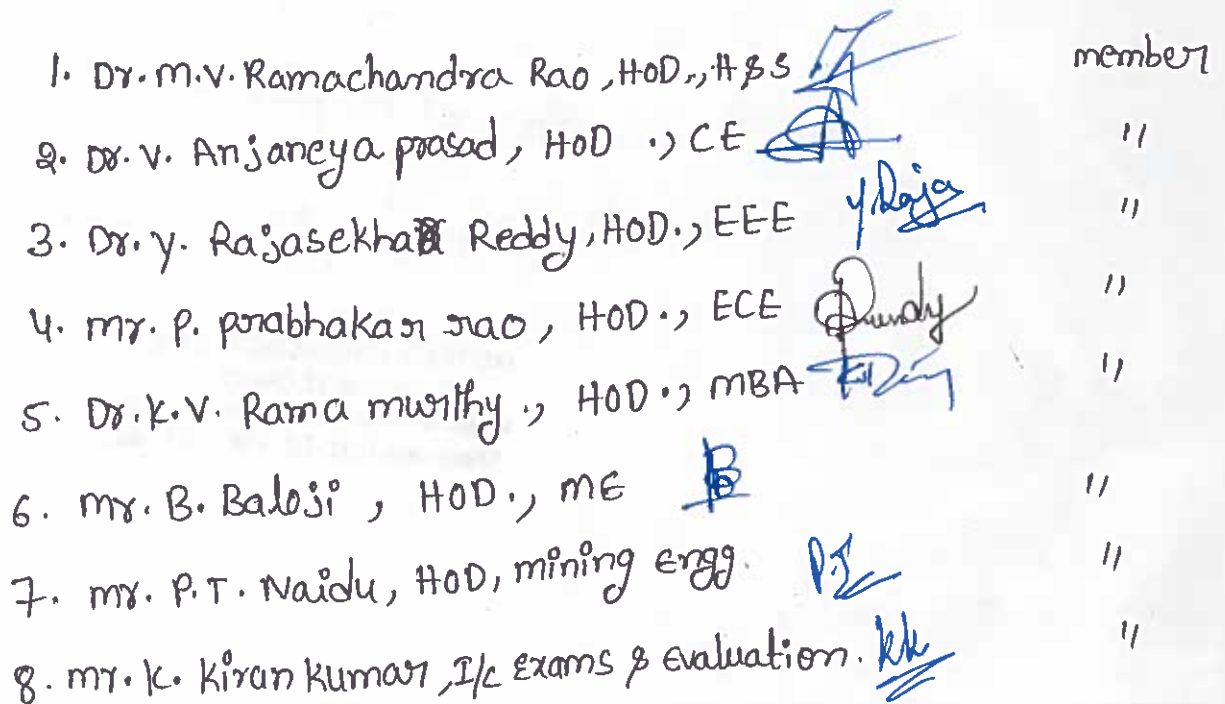 1. Dr. M.V. Ramachandra Rao, HOD., H&S member
2. Dr. V. Anjaneya prasad, HOD ., CE "
3. Dr. y. Rajasekhar Reddy, HOD., EEE y Raja "
4. mr. P. prabhakar rao, HOD., ECE "
5. Dr. K.V. Rama murthy ., HOD ., MBA "
6. mr. B. Baloji, HOD., ME B "
7. mr. P.T. Naidu, HOD, mining Engg. "
8. mr. K. Kiran Kumar, I/c Exams & Evaluation. kk "